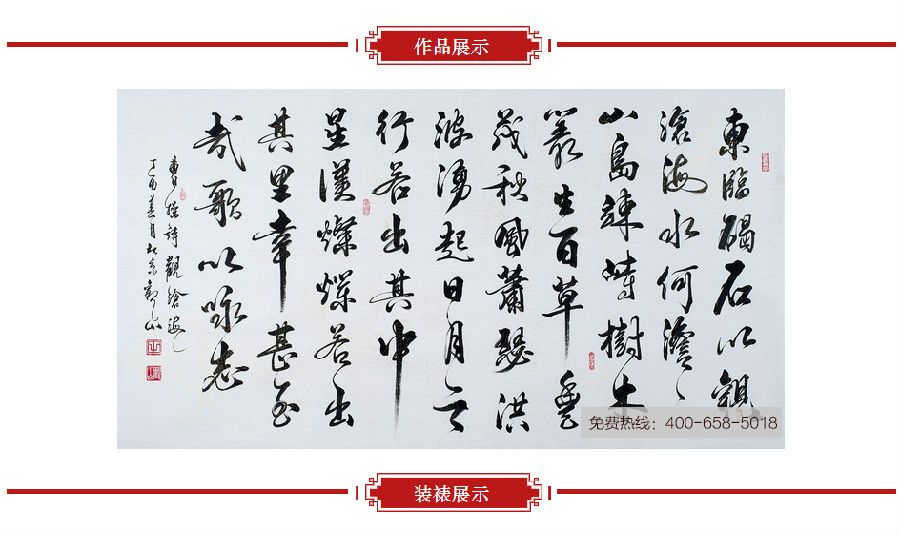 作品展示
東臨碣石以觀
滄海水何澹〻
山島竦峙樹木
叢生百草豐
茂秋風蕭瑟洪
波湧起日月之
行若出其中
星漢燦爛若出
其里幸甚至
哉歌以咏志
曹操詩觀滄海
丁酉
免费热线：400-658-5018
装裱展示